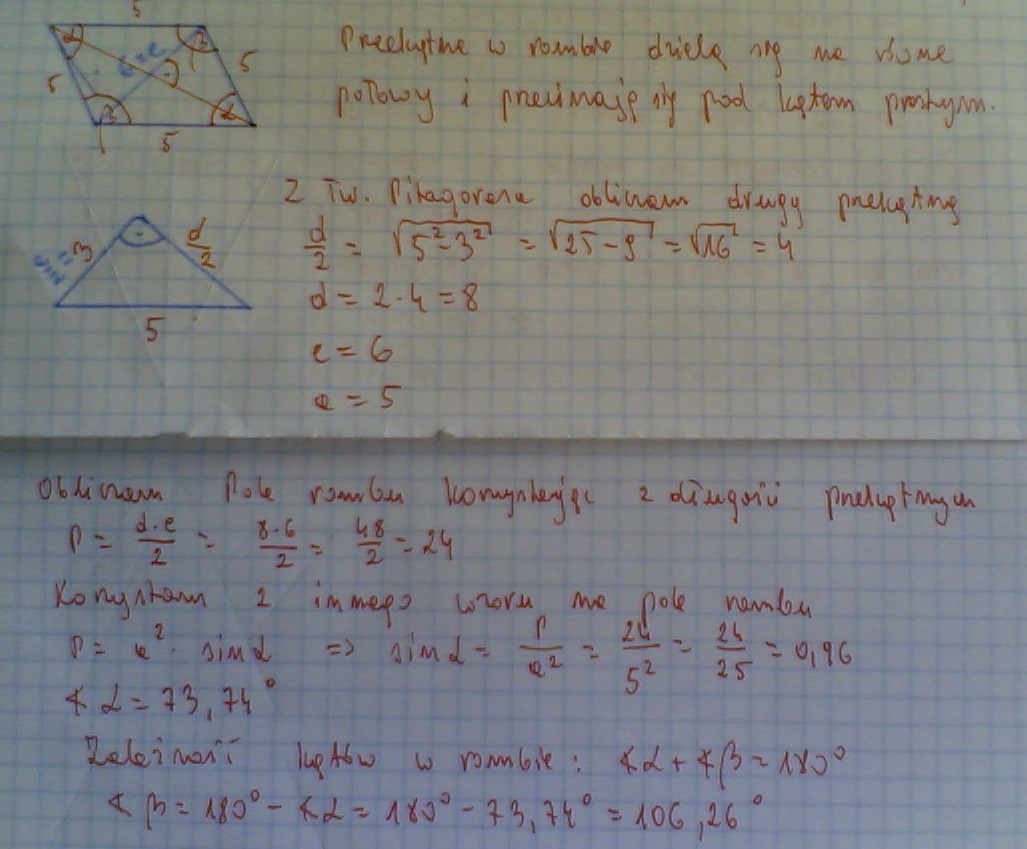 5
α e=6 β
5 5
β α
5
Przekątne w rombie dzielą się na równe
połowy i przecinają się pod kątem prostym.
Z Tw. Pitagorasa obliczam drugą przekątną
e/2 = 3 d/2
5
d/2 = √(5² - 3²) = √(25 - 9) = √16 = 4
d = 2 · 4 = 8
e = 6
a = 5
Obliczam Pole rombu korzystając z długości przekątnych
P = d·e/2 = 8·6/2 = 48/2 = 24
Korzystam z innego wzoru na pole rombu
P = a² · sin α => sin α = P/a² = 24/5² = 24/25 = 0,96
∢ α = 73,74°
Zależność kątów w rombie: ∢α + ∢β = 180°
∢ β = 180° - ∢α = 180° - 73,74° = 106,26°